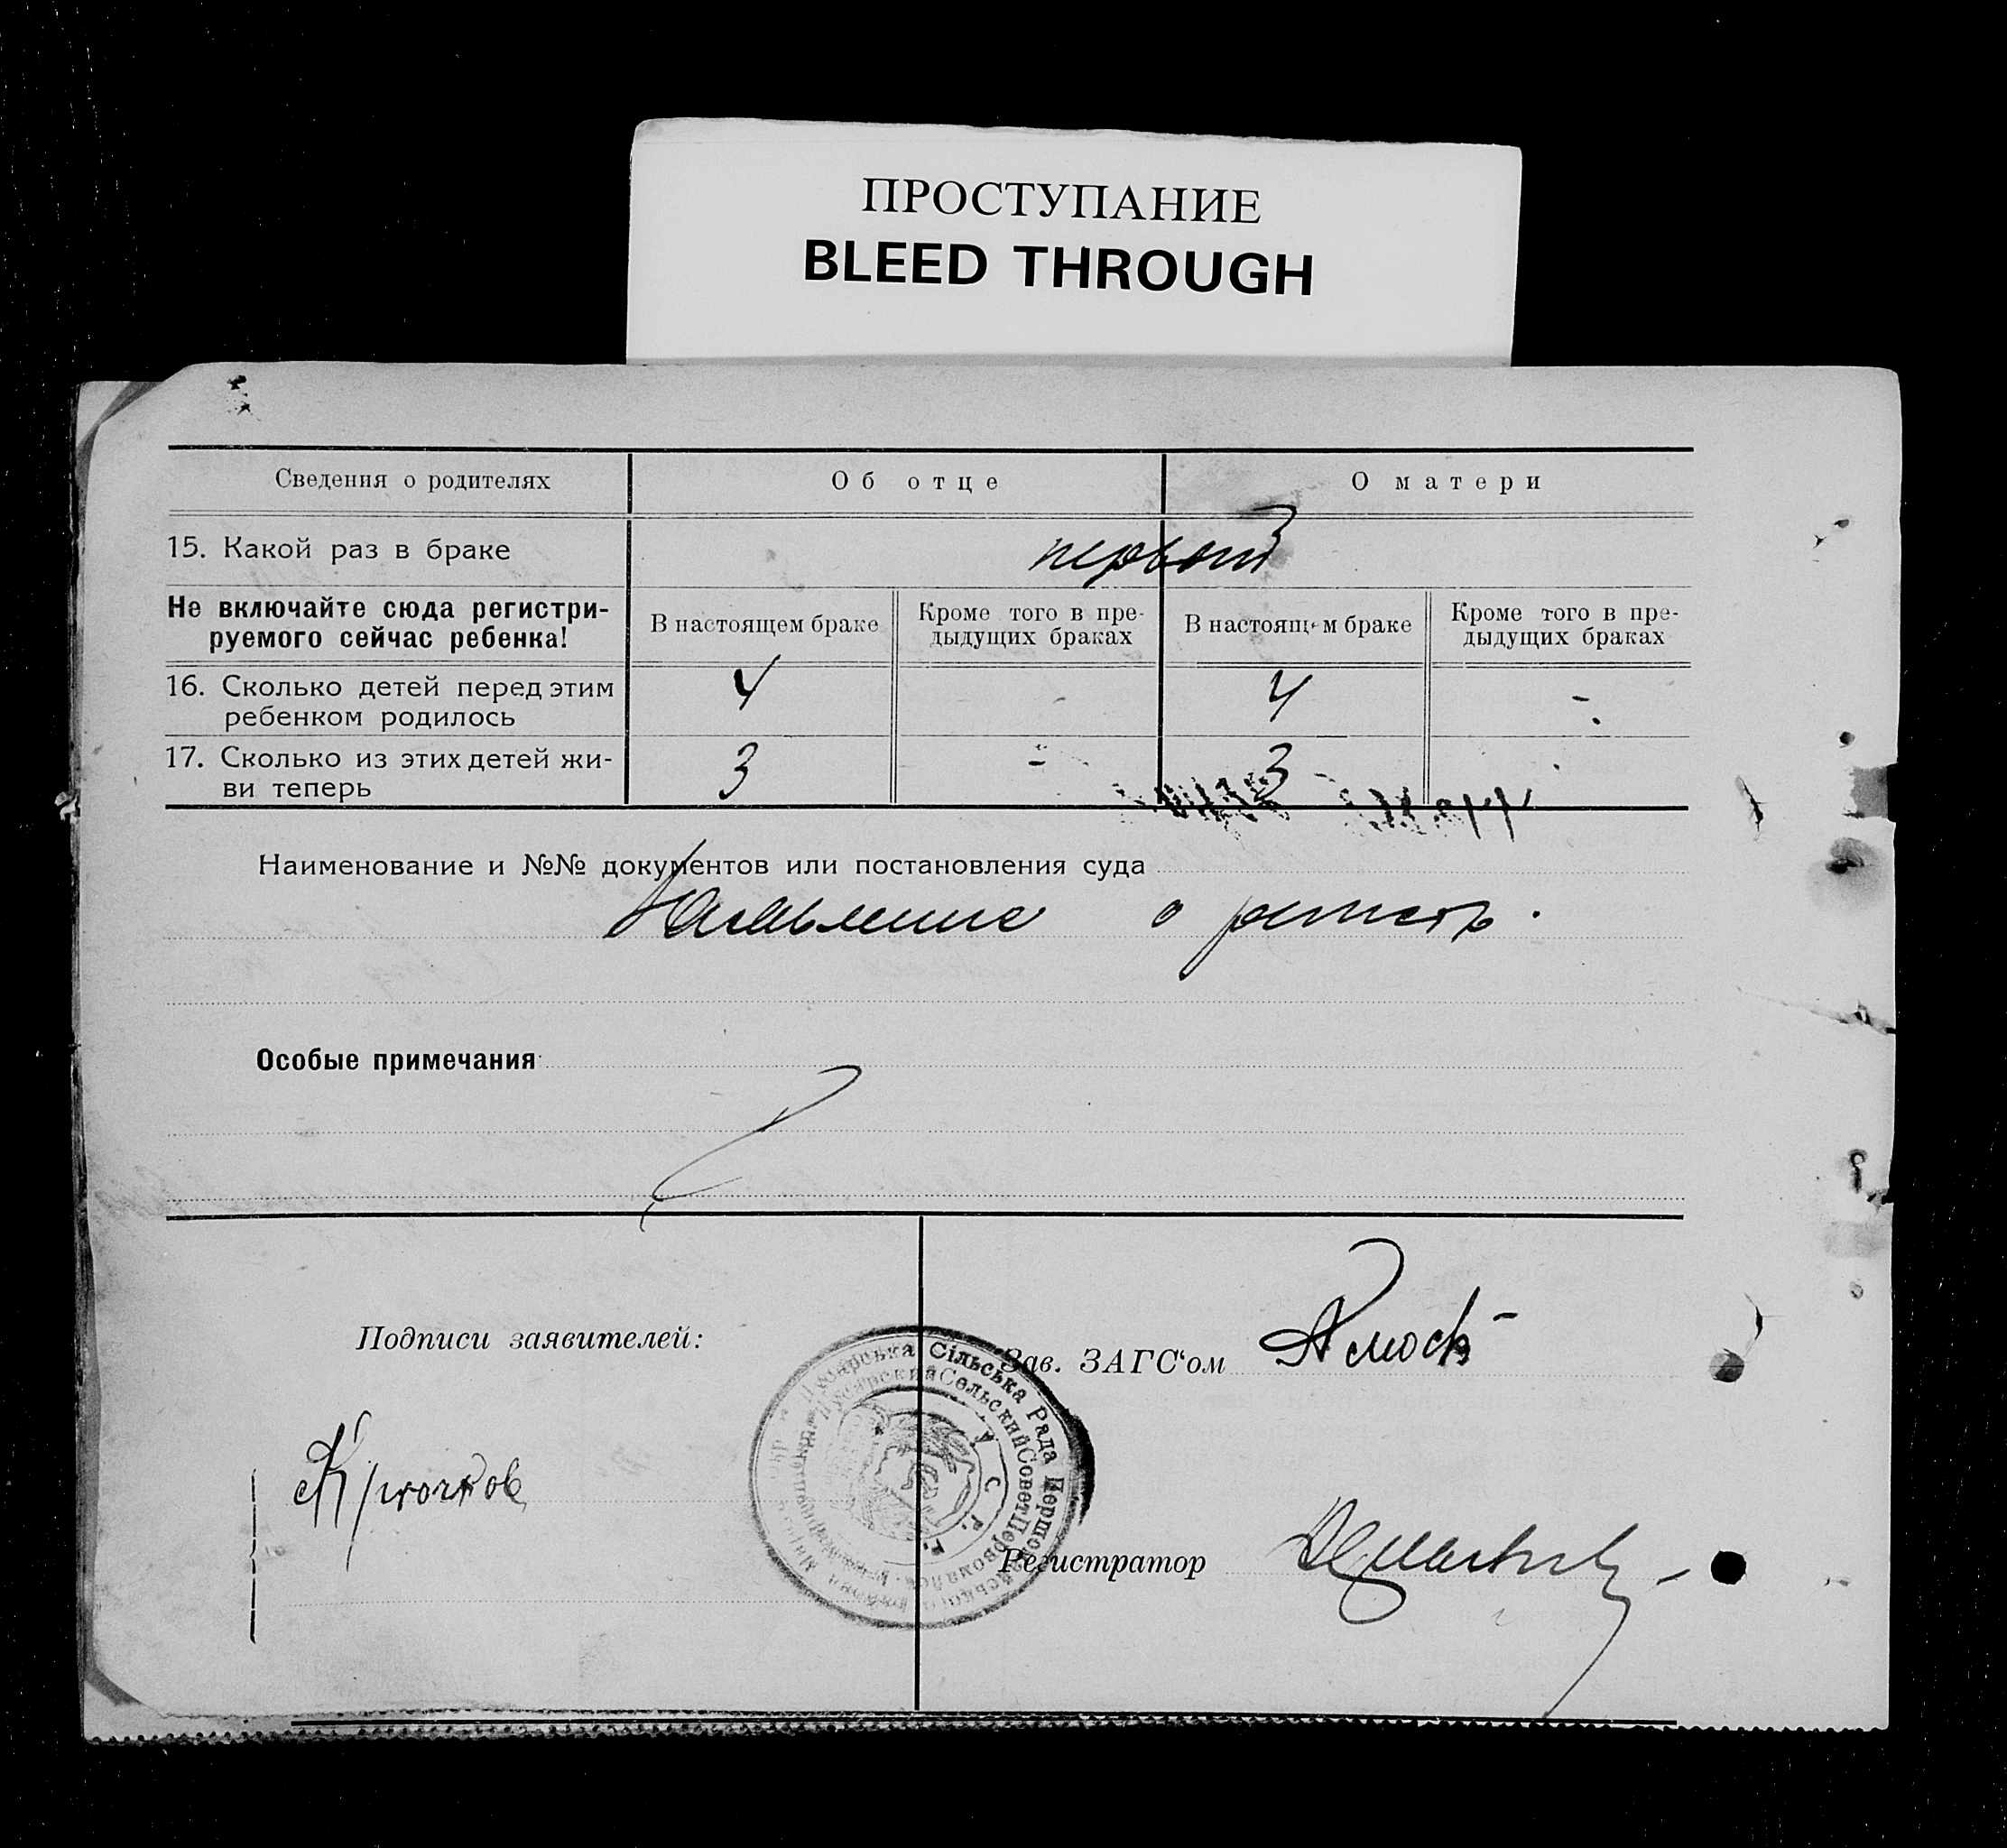 ПРОСТУПАНИЕ
BLEED THROUGH
Сведения о родителях
Об отце
О матери
15. Какой раз в браке
первый
Не включайте сюда регистри-
руемого сейчас ребенка!
В настоящем браке
Кроме того в пре-
дыдущих браках
В настоящем браке
Кроме того в пре-
дыдущих браках
16. Сколько детей перед этим
ребенком родилось
4
-
4
-
17. Сколько из этих детей жи-
ви теперь
3
-
3
Наименование и №№ документов или постановления суда
о
Особые примечания
Подписи заявителей:
Зав. ЗАГС‘ом
Крючков
Регистратор
Сільська Рада
Сельский Совет
У. С. Р. Р.